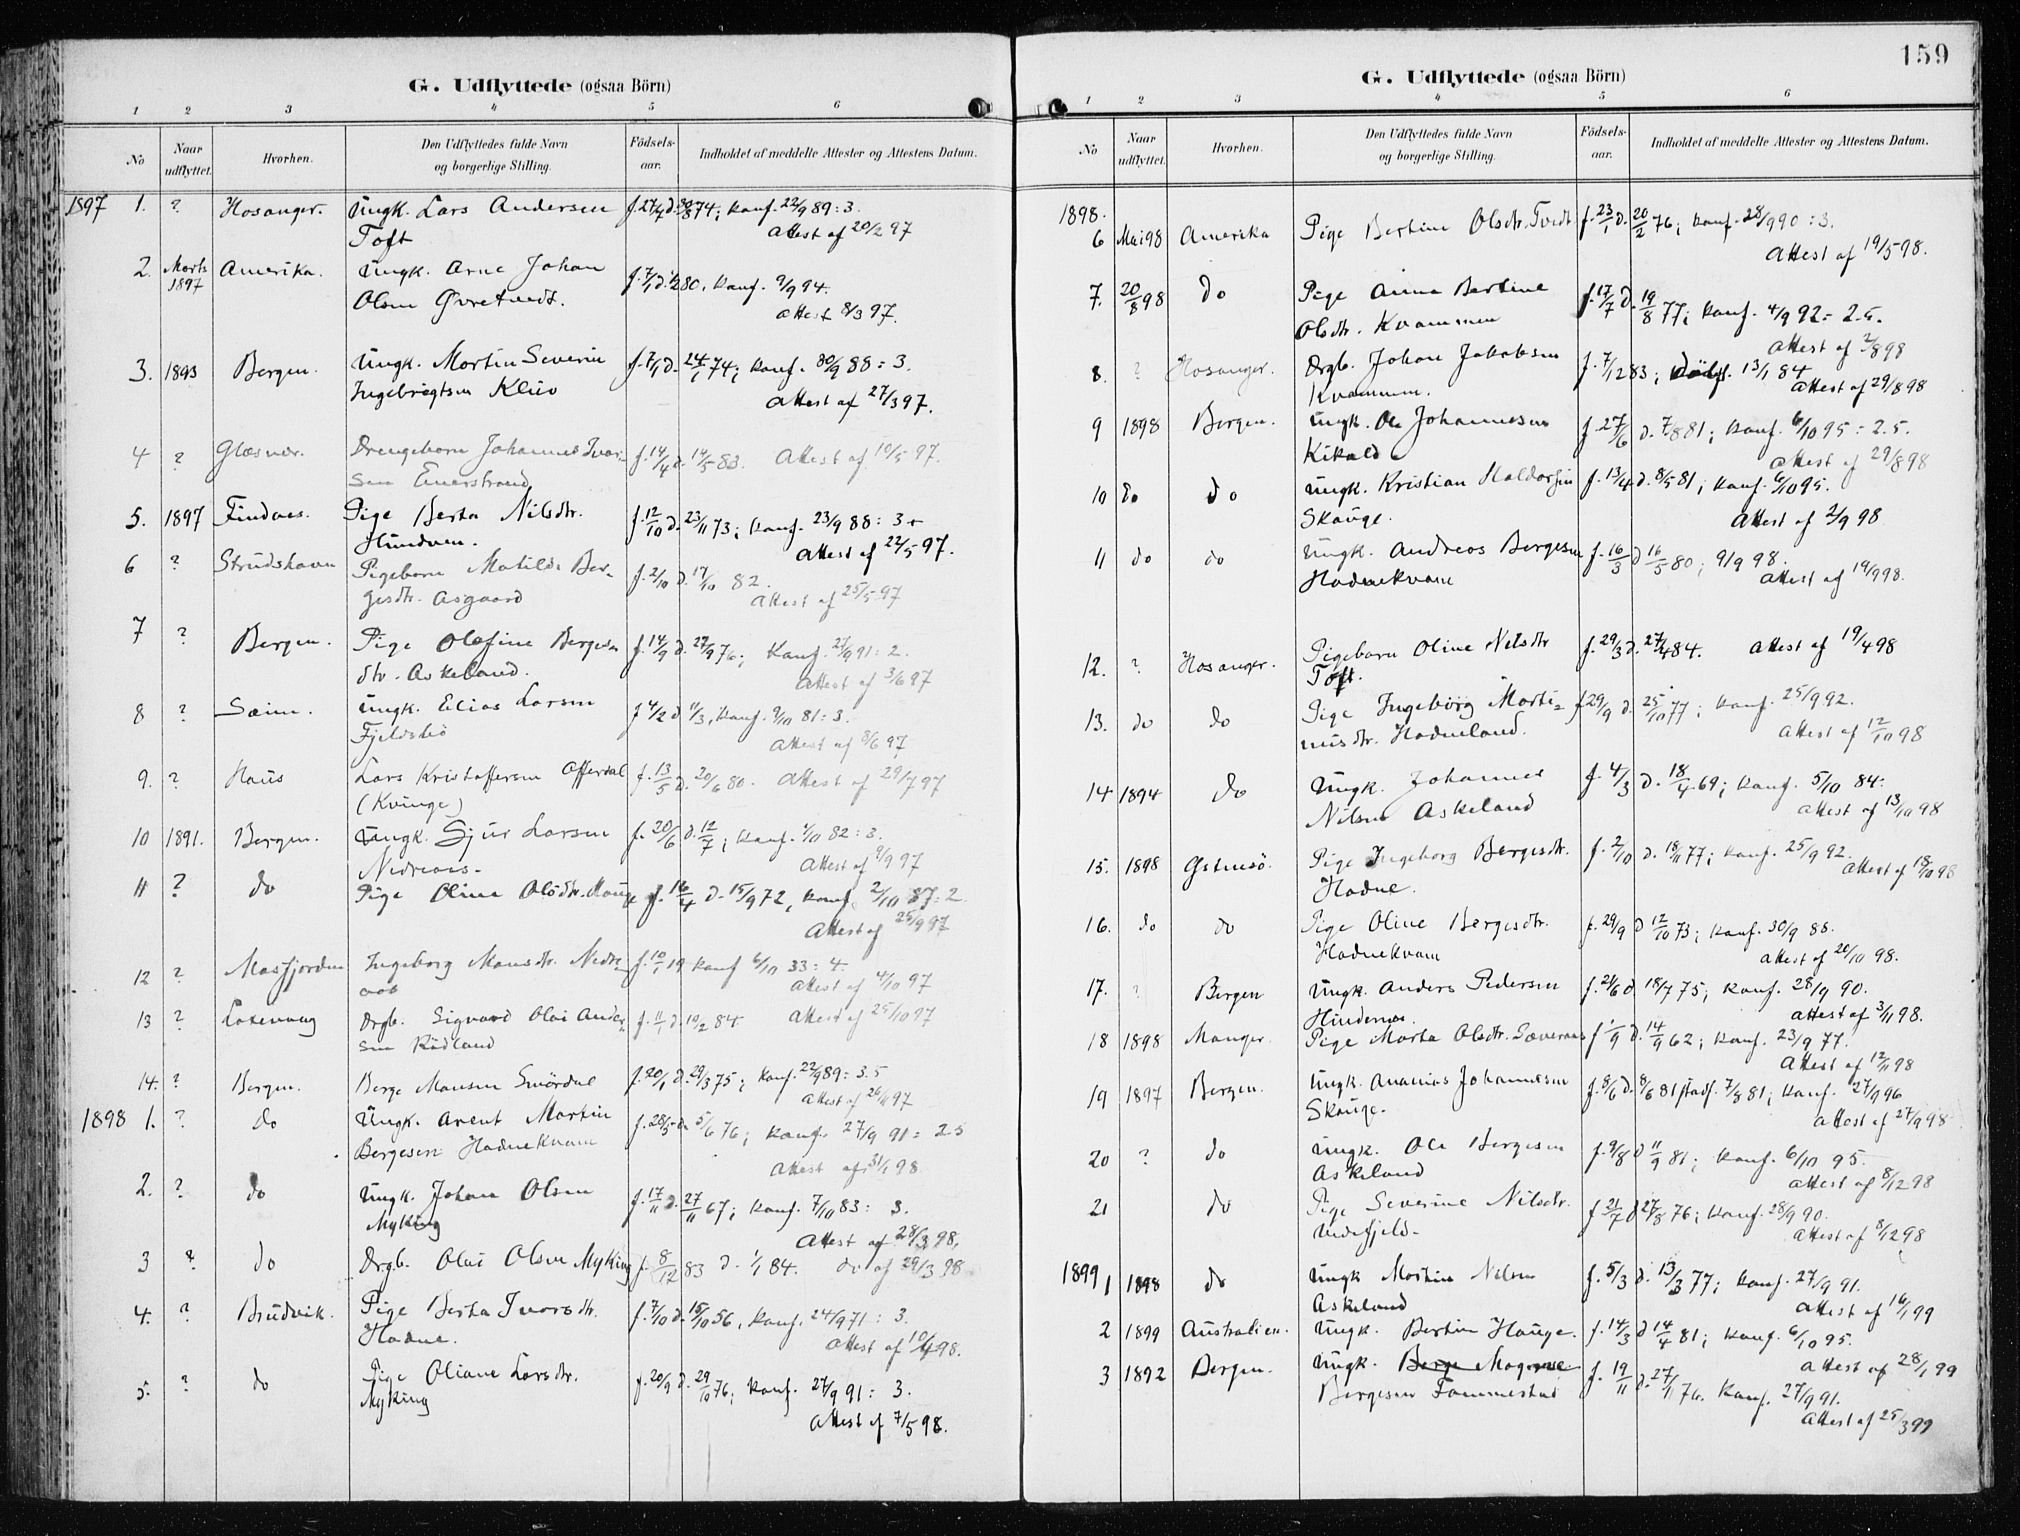 G. Udflyttede (ogsaa Börn)
1 2 3 4 5 6
No Naar udflyttet. Hvorhen. Den Udflyttedes fulde Navn og borgerlige Stilling. Födsels-aar. Indholdet af meddelte Attester og Attestens Datum.
1897 1. ? Hosanger. Ungk. Lars Andersen f. 27/7 d. 30/8 74; konf. 22/9 89: 3.
Toft Attest af 20/2 97
2. Marts 1897 Amerika. Ungk. Arne Johan f. 7/1 d. 1/2 80. konf. 9/9 94.
Olsen Attest 8/3 97.
3. 1893 Bergen. Ungk. Martin Severin f. 7/1 d. 24/1 74; konf. 30/9 88: 3.
Ingebrigtsen Kleiv Attest af 27/3 97.
4 ? Glæsvær. Drengebarn Johannes Ivar- f. 14/4 d. 14/5 83. Attest af 19/5 97.
sen
5. 1897 Findaas. Pige Berta Nilsdtr. f. 12/10 d. 23/11 73; konf. 23/9 88: 3+
Hundven. Attest af 22/5 97.
6 ? Strudshavn Pigebarn Matilde Ber- f. 2/10 d. 17/10 82.
gesdtr. Asgaard Attest af 25/5 97
7 ? Bergen. Pige Olefine Berges- f. 14/9 d. 27/9 76; konf. 27/9 91: 2.
dtr. Askeland. Attest af 3/6 97
8 ? Sæim. Ungk. Elias Larsen f 4/2 d 11/3, konf. 9/10 81: 3.
Fjeldsbö Attest af 8/6 97
9. ? Haus Lars Kristoffersen f. 13/5 d. 20/6 80. Attest af 29/7 97
(Kvinge)
10 1891. Bergen. Ungk. Sjur Larsen f. 20/6 d. 12/7; konf. 1/10 82: 3.
Nedreaas. Attest af 9/9 97
11 ? do Pige Oline Olsdtr. Hauge f. 16/4 d. 15/9 72, konf. 2/10 87: 2
Attest af 25/9 97
12 ? Masfjorden Ingeborg Monsdtr. Nedre- f. 10/1 19 konf 6/10 33: 4.
aas Attest af 4/10 97
13 ? Laxevaag Drgb. Sigvard Olai Ander- f. 11/1 d. 10/2 84. Attest af 25/10 97
sen Rödland
14. ? Bergen. Berge Monsen Smördal f. 20/1 d. 29/3 75; konf. 22/9 89: 3.5
Attest af 26/11 97
1898 1. ? do Ungk. Arent Martin f. 28/5 d 5/6 76; konf. 27/9 91: 2.5
Bergesen Hadnekvam Attest af 31/1 98
2. ? do Ungk. Johan Olsen f. 17/11 d. 27/11 67; konf. 7/10 83: 3.
Myking Attest af 28/3 98.
3 ? do Drgb. Olai Olsen Myking f. 8/12 83 d. 1/1 84. do af 29/3 98
4. ? Brudvik. Pige Berta Ivarsdtr. f. 7/10 d. 15/10 56, konf. 24/9 71: 3.
Hadne. Attest af 10/4 98.
5. ? do Pige Oliane Larsdtr. f. 20/9 d. 29/10 76; konf. 27/9 91: 3.
Myking Attest af 7/5 98.
159
G. Udflyttede (ogsaa Börn)
1 2 3 4 5 6
No Naar udflyttet. Hvorhen. Den Udflyttedes fulde Navn og borgerlige Stilling. Födsels-aar. Indholdet af meddelte Attester og Attestens Datum.
1898.
6 Mai 98 Amerika Pige Bertine Olsdtr. Tvedt f. 23/1 d. 20/2 76; konf. 28/9 90: 3.
Attest af 19/5 98.
7. 20/8 98 do Pige Anna Bertine f. 17/7 d. 19/8 77; konf. 4/9 92: 2.5.
Olsdtr. Kvammen Attest af 2/8 98
8. ? Hosanger. Drgb. Johan Jakobsen f. 7/12 83; 13/1 84
Kvammen. Attest af 29/8 98
9 1898 Bergen. Ungk. Ole Johannesen f. 27/6 d. 7/8 81; konf. 6/10 95: 2.5.
Attest af 29/8 98
10 do do Ungk. Kristian Haldorsen f. 13/4 d. 8/5 81; konf. 6/10 95.
Skauge. Attest af 2/9 98
11 do do Ungk. Andreas Bergesen f. 16/3 d 16/5 80; 9/9 98.
Hadnekvam Attest af 19/9 98.
12. ? Hosanger. Pigebarn Oline Nilsdtr f. 29/3 d. 27/4 84. Attest af 19/4 98
Toft.
13. do do Pige Ingeborg Marti- f 29/9 d. 25/10 77; konf. 25/9 92.
nusdtr. Hadneland. Attest af 12/10 98
14 1894 do Ungk. Johannes f. 4/3 d. 18/4 69; konf. 5/10 84.
Nilsen Askeland Attest af 13/10 98
15. 1898 Pige Ingeborg Bergesdtr. f. 2/10 d. 18/11 77; konf. 25/9 92.
Hadne. Attest af 18/10 98
16. do do Pige Oline Bergesdtr. f. 29/9 d 12/10 73; konf. 30/9 88.
Hadnekvam Attest af 20/10 98.
17. ? Bergen Ungk. Anders Pedersen f. 21/6 d 18/7 75; konf. 28/9 90.
Hindenes. Attest af 3/11 98.
18 1898 Manger. Pige Marta Olsdtr. Sæveraas d. 14/9 62; konf. 23/9 77.
Attest af 12/11 98
19 1897 Bergen. Ungk. Ananias Johannesen f. 8/6 d. 8/6 81 stadf. 7/8 81; konf. 27/9 96
Skauge. Attest af 27/9 98
20 ? do Ungk. Ole Bergesen f. 9/8 d 11/9 81; konf. 6/10 95.
Askeland Attest af 8/12 98
21 do Pige Severine Nilsdtr. f. 31/7 d 27/8 76; konf. 28/9 90.
Attest af 8/12 98
1899 1 1898 do Ungk Martin Nilsen f. 5/3 d. 13/3 77; konf. 27/9 91.
Askeland Attest af 16/1 99
2 1899 Australien. Ungk. Bertin Hauge. f. 14/3 d 14/4 81; konf. 6/10 95.
Attest af 28/1 99
3 1892 Bergen. Ungk. Berge Magnus f. 19/11 d. 27/11 76. konf. 27/9 91.
Bergesen Attest af 25/3 99